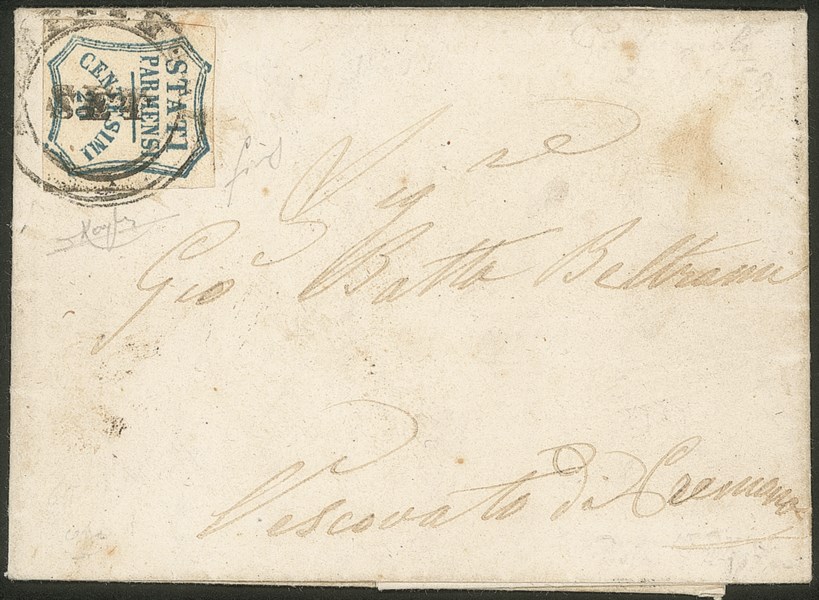 STATI
PARMENSI
20
CENTESIMI
SET
Sig.re
Gio. Batta Beltrami
Vescovato di Cremona